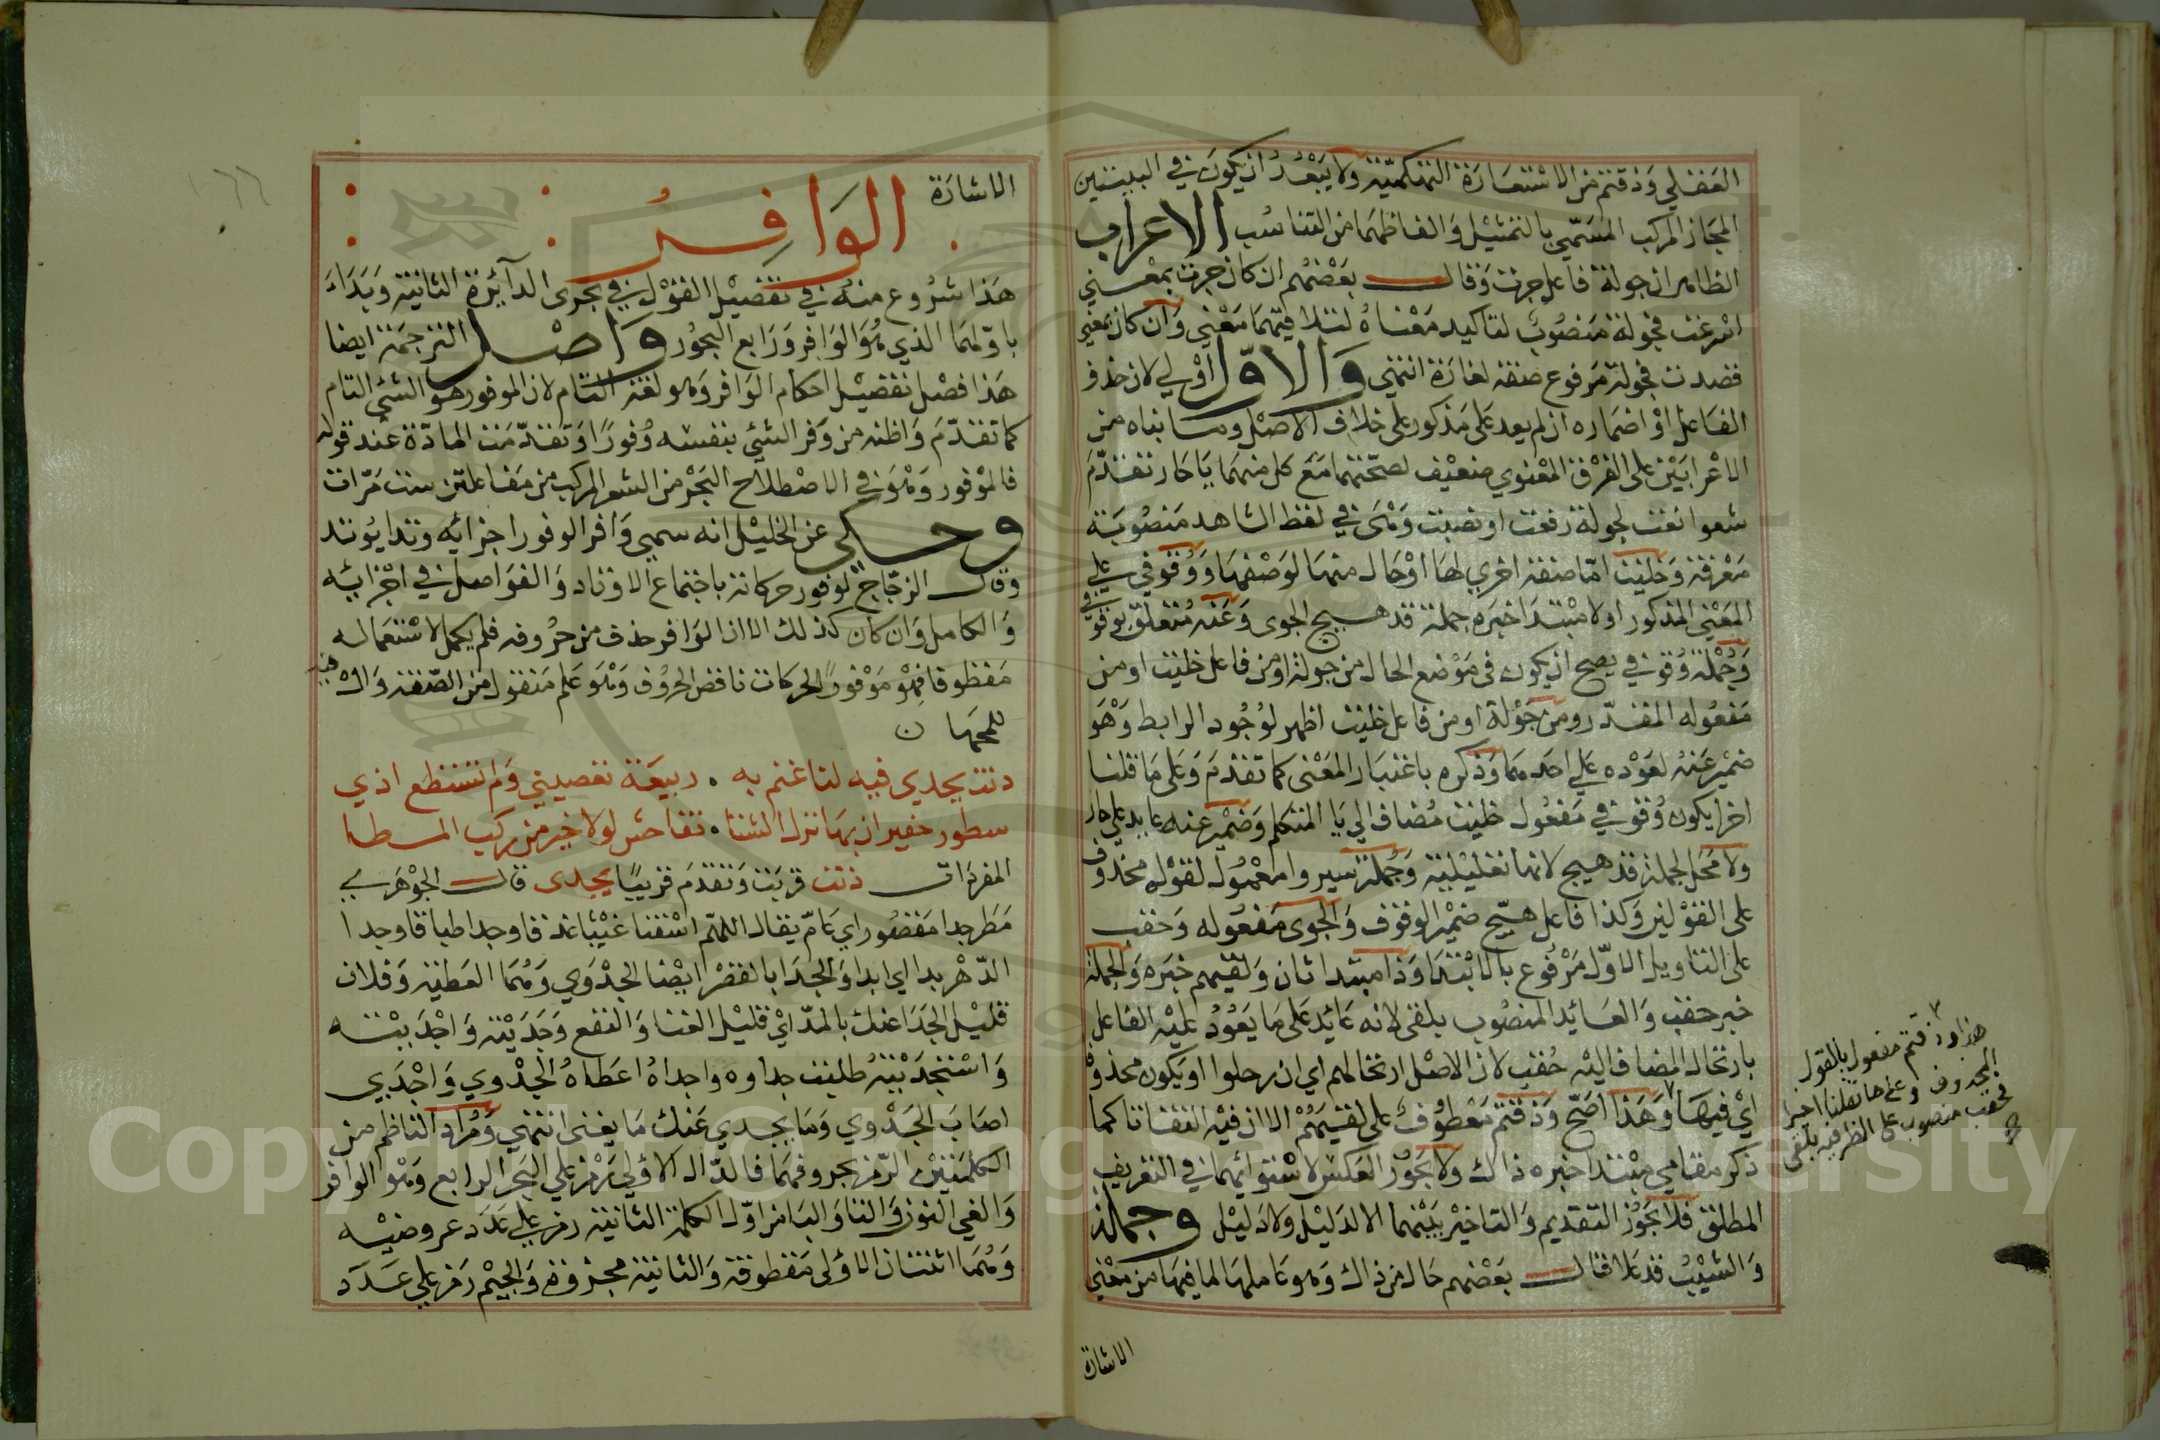 العقلي وذقتم من الاستعارة التهكمية ولا يبعد ان يكون في البيتين
المجاز المركب المسمى بالتمثيل والفاظهما من التناسب الاعراب
الظاهر ان جولة فاعل جرت وقال بعضهم ان كان جرت بمعنى
اسرعت فجولة منصوب لتاكيد معناه لتلاقيهما معنى وان كان بمعنى
قصدت فجولة مرفوع صفة لغارة انتهى والاول اولى لان حذف
الفاعل او اضماره ان لم يعد على مذكور على خلاف الاصل وما بناه من
الاعرابين على الفرق المعنوي ضعيف لصحتهما مع كل منهما يا حار تقدم
شعوا نعت لجولة رفعت او نصبت وهي في لفظ الشاهد منصوبة
معرفة وخليت اما صفة اخرى لها او حال منها لوصفها ووقوفي على
المعنى المذكور اولا مبتدا خبره جملة قد هيج الجوى وعنه متعلق بوقوفي
وجملة وقوفي يصح ان يكون في موضع الحال من جولة او من فاعل خليت او من
مفعوله المقدر ومن جولة او من فاعل خليت اظهر لوجود الرابط وهو
ضمير عنه لعوده على احدهما وذكره باعتبار المعنى كما تقدم وعلى ما قلنا
اخرا يكون وقوفي مفعول خليت مضاف الى يا المتكلم وضمير عنه عايد على حار
ولا محل لجملة قد هيج لانها تعليلية وجملة سيروا معمول لقوله محذوف
على القولين وكذا فاعل هيج ضمير الوقوف والجوى مفعوله وحقب
على التاويل الاول مرفوع بالابتدا وذا مبتدا ثان ولقيهم خبره والجملة
خبر حقب والعائد المنصوب بلقى لانه عائد على ما يعود عليه الفاعل
بارتحال المضاف اليه حقب لان الاصل ارتحالهم اي ان رحلوا او يكون محذوفا
اي فيها وهذا اصح وذقتم معطوف على لقيهم الا ان فيه التفاتا كما
ذكر مقامي مبتدا خبره ذاك ولا يجوز العكس لاستوائهما في التعريف
المطلق فلا يجوز التقديم والتاخير بينهما الا لدليل ولا دليل وجملة
والشيب قد علا قال بعضهم حال من ذاك وهو عاملها لما فيها من معنى
الاشارة
هذا وذقتم مفعول بالقول
المحذوف وعلى ما قلنا اخرا
فحقب منصوب على الظرفية بلقى
الاشارة
الوافر
هذا شروع منه في تفصيل القول في بحرى الدآئرة الثانية وبداء
باولهما الذي هو الوافر ورابع البحور واصل الترجمة ايضا
هذا فصل تفصيل احكام الوافر وهو لغة التام لان الموفور هو الشئ التام
كما تقدم واظنه من وفر الشئ بنفسه وفورا وتقدمت المادة عند قوله
فالموفور وهو في الاصطلاح البحر من الشعر المركب من مفاعلتن ست مرات
وحكى عن الخليل انه سمي وافر الوفور اجزائه وتدا بوتد
وقال الزجاج لوفور حركاته باجتماع الاوتاد والفواصل في اجزائه
والكامل وان كان كذلك الا ان الوافر حذف من حروفه فلم يكمل لاستعماله
مقطوفا فهو موفور الحركات ناقص الحروف وهو علم منقول من الصفة
للمحها ن
دنت بجدى فيه لنا غنم به ۰ ربيعة تعصيني ولم تستطع اذي
سطور حفير ان بها نزل الشتا ۰ تفاحش لولا خير من ركب المطا
المفردات دنت قربت وتقدم قريبا بجدى قال الجوهري
مطر جدا مقصور اي عام يقال اللهم اسقنا غيثا غدقا وجدا طبقا وجدا
الدهر بدا اي ابدا والجدا بالقصر ايضا الجدوي وهما العطية وفلان
قليل الجدا عنك بالمد اي قليل الغنا والنفع وجديته واجتديته
واستجديته طلبت جداوه واجداه اعطاه الجدوي واجدي
اصاب الجدوي وما يجدي عنك ما يغني انتهى ومراد الناظم من
الكلمتين الرمز بحروفهما فالدال الاولى رمز على البحر الرابع وهو الوافر
والغي النون والتا والبا من اول الكلمة الثانية رمز على عدد عروضيه
وهما اثنتان الاولى مقطوفة والثانية مجزوة والجيم رمز على عدد